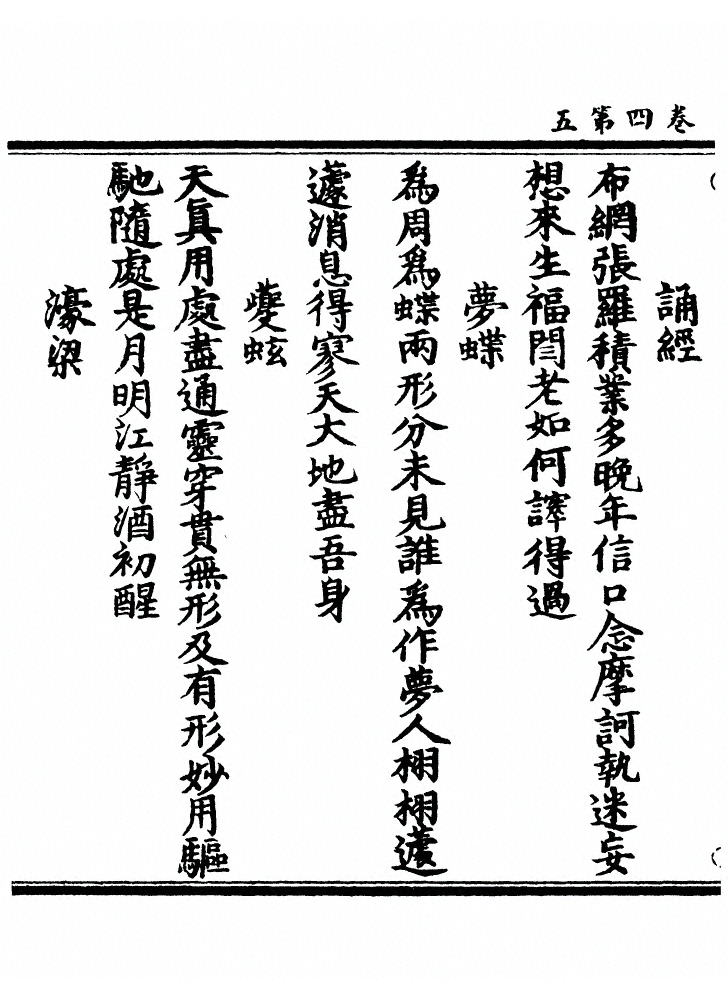 卷四第五
誦經
布網張羅積業多晚年信口念摩訶執迷妄
想來生福閻老如何譁得過
夢蝶
爲周爲蝶兩形分未見誰爲作夢人栩栩蘧
蘧消息得寥天大地盡吾身
夔蚿
天眞用處盡通靈穿貫無形及有形妙用驅
馳隨處是月明江靜酒初醒
濠梁